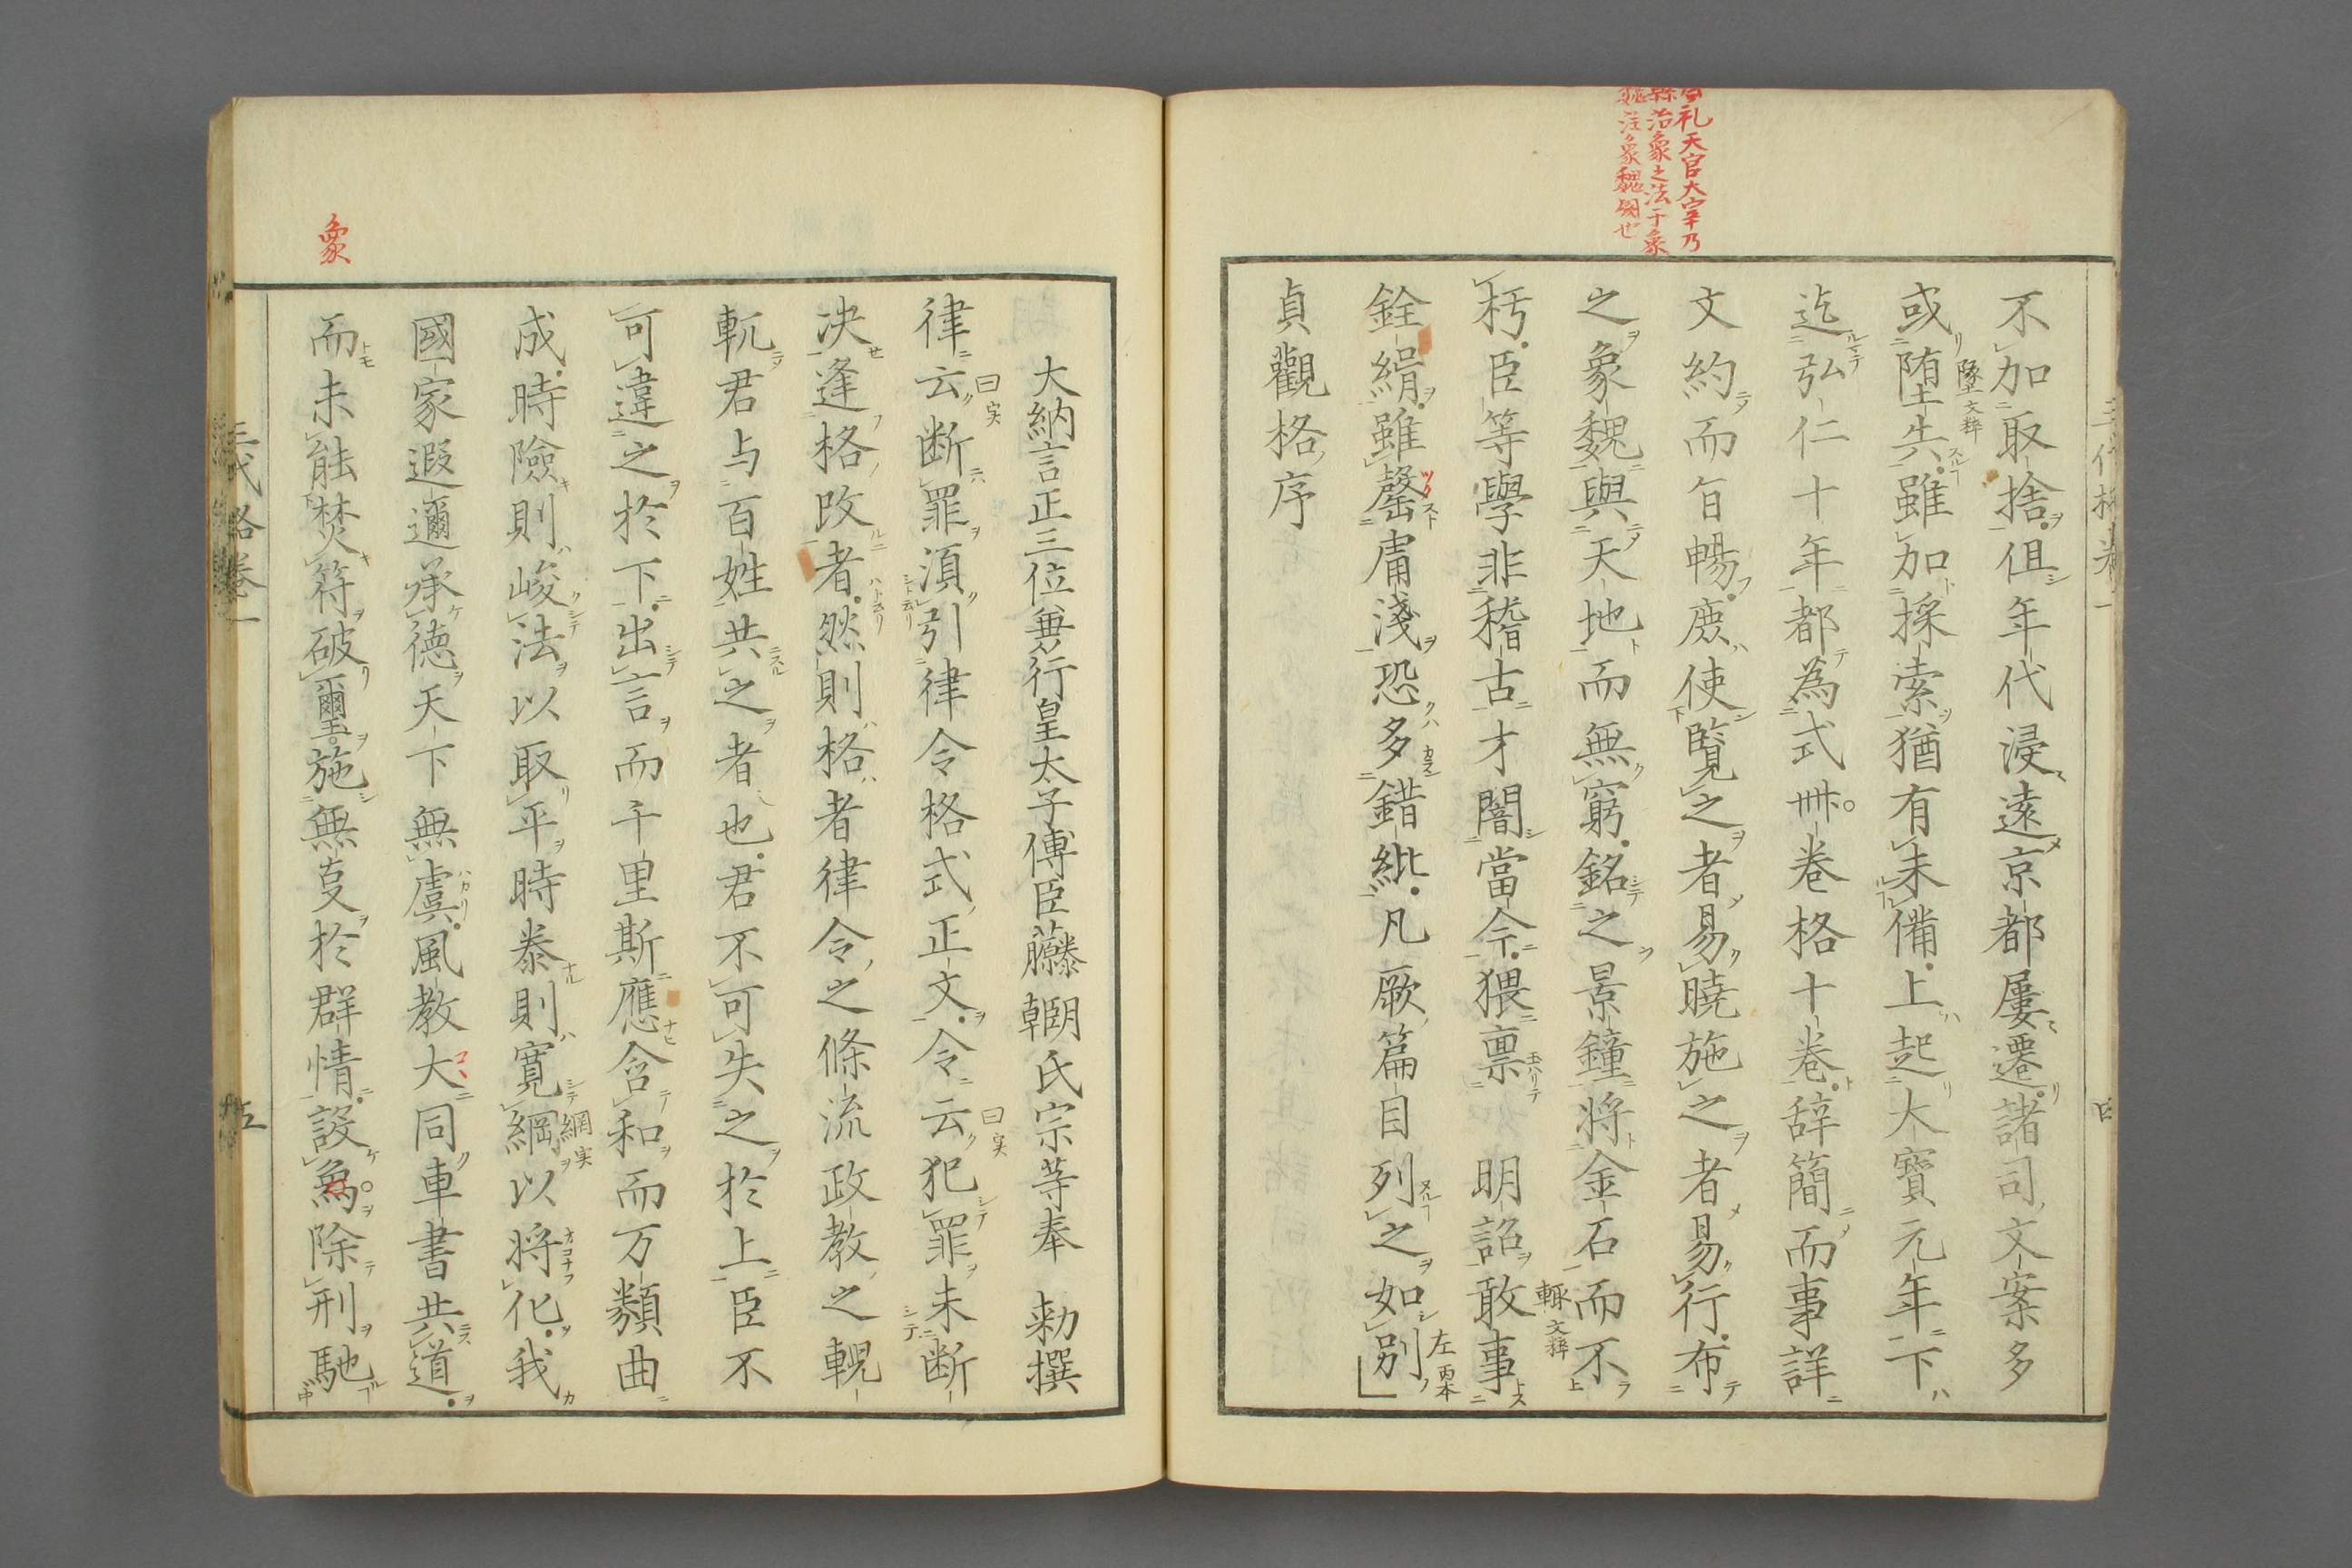 礼天官大宰乃
縣治象之法于象
魏注象魏闕也
不加取捨但年代浸遠京都屢遷諸司文案多
或堕失雖加採索猶有未備上起大寶元年下
墜文粹
迄弘仁十年都為式卌巻格十巻辞簡而事詳
文約而旨暢庶使覧之者易曉施之者易行布
之象魏與天地而無窮銘之景鐘将金石而不
朽臣等學非稽古才闇當今猥禀 明詔敢事
輙文粹
銓緝雖罄庸淺恐多錯紕凡厥篇目列之如別
左 丙本
貞觀格序
大納言正三位兼行皇太子傅臣藤朝氏宗等奉 勅撰
律云断罪湏引律令格式正文令云犯罪未断
曰実
曰実
决逢格改者然則格者律令之條流政教之輗
軏君与百姓共之者也君不可失之於上臣不
可違之於下出言而千里斯應含和而万類曲
成時險則峻法以取平時泰則寛綱以将化我
網実
國家遐邇承徳天下無虞風教大同車書共道
而未能焚符破璽施無㚆於群情設為除刑馳
象
三代格巻一
五